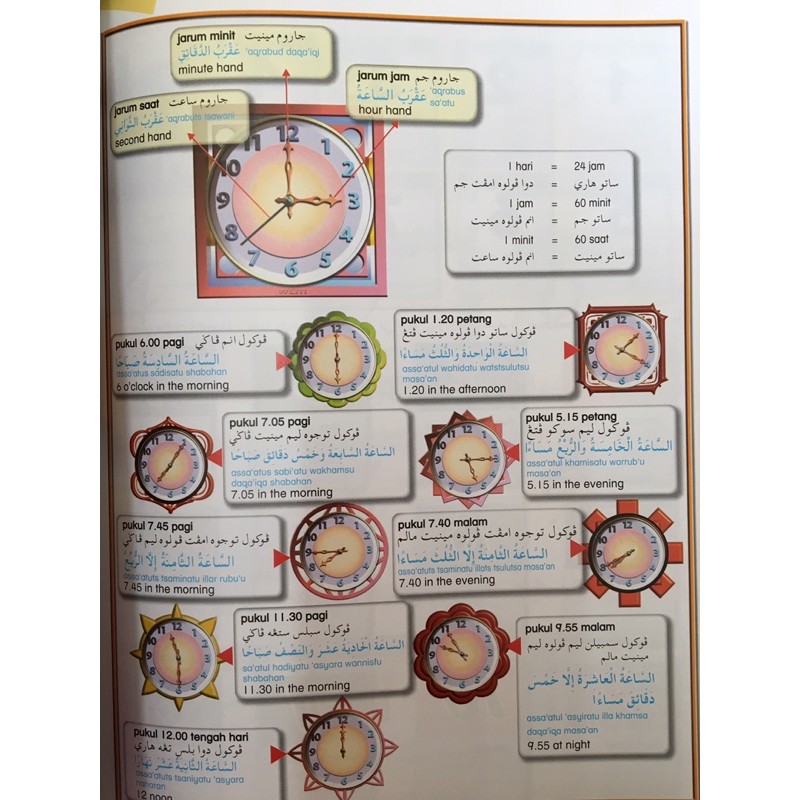 jarum minit جاروم مينيت
عَقْرَبُ الدَّقَائِقِ 'aqrabud daqa'iqi
minute hand
jarum jam جاروم جم
عَقْرَبُ السَّاعَةُ 'aqrabus sa'atu
hour hand
jarum saat جاروم ساعت
عَقْرَبُ الثَّوَانِي 'aqrabuts tsawani
second hand
12
1
2
3
4
5
6
7
8
9
10
11
1 hari = 24 jam
ساتو هاري = دوا ڤولوه امڤت جم
1 jam = 60 minit
ساتو جم = انم ڤولوه مينيت
1 minit = 60 saat
ساتو مينيت = انم ڤولوه ساعت
pukul 6.00 pagi ڤوكول انم ڤاڬي
السَّاعَةُ السَّادِسَةُ صَبَاحًا
assa'atus sadisatu shabahan
6 o'clock in the morning
pukul 1.20 petang
ڤوكول ساتو دوا ڤولوه مينيت ڤتڠ
السَّاعَةُ الْوَاحِدَةُ وَالثُّلُثُ مَسَاءًا
assa'atul wahidatu watstsulutsu
masa'an
1.20 in the afternoon
pukul 7.05 pagi
ڤوكول توجوه ليم مينيت ڤاڬي
السَّاعَةُ السَّابِعَةُ وَخَمْسُ دَقَائِقَ صَبَاحًا
assa'atus sabi'atu wakhamsu
daqa'iqa shabahan
7.05 in the morning
pukul 5.15 petang
ڤوكول ليم سوكو ڤتڠ
السَّاعَةُ الْخَامِسَةُ وَالرُّبْعُ مَسَاءًا
assa'atul khamisatu warrub'u
masa'an
5.15 in the evening
pukul 7.45 pagi
ڤوكول توجوه امڤت ڤولوه ليم ڤاڬي
السَّاعَةُ الثَّامِنَةُ إِلَّا الرُّبْعُ
assa'atuts tsaminatu illar rubu'u
7.45 in the morning
pukul 7.40 malam
ڤوكول توجوه امڤت ڤولوه مينيت مالم
السَّاعَةُ الثَّامِنَةُ إِلَّا الثُّلُثُ مَسَاءًا
assa'atuts tsaminatu illats tsulutsa masa'an
7.40 in the evening
pukul 11.30 pagi
ڤوكول سبلس ستڠه ڤاڬي
السَّاعَةُ الْحَادِيَةُ عَشَرَ وَالنِّصْفُ صَبَاحًا
sa'atul hadiyatu 'asyara wannisfu
shabahan
11.30 in the morning
pukul 9.55 malam
ڤوكول سمبيلن ليم ڤولوه ليم
مينيت مالم
السَّاعَةُ الْعَاشِرَةُ إِلَّا خَمْسَ
دَقَائِقَ مَسَاءًا
assa'atul 'asyiratu illa khamsa
daqa'iqa masa'an
9.55 at night
pukul 12.00 tengah hari
ڤوكول دوا بلس تڠه هاري
السَّاعَةُ الثَّانِيَةُ عَشَرَ نَهَارًا
assa'atuts tsaniyatu 'asyara
naharan
12 noon